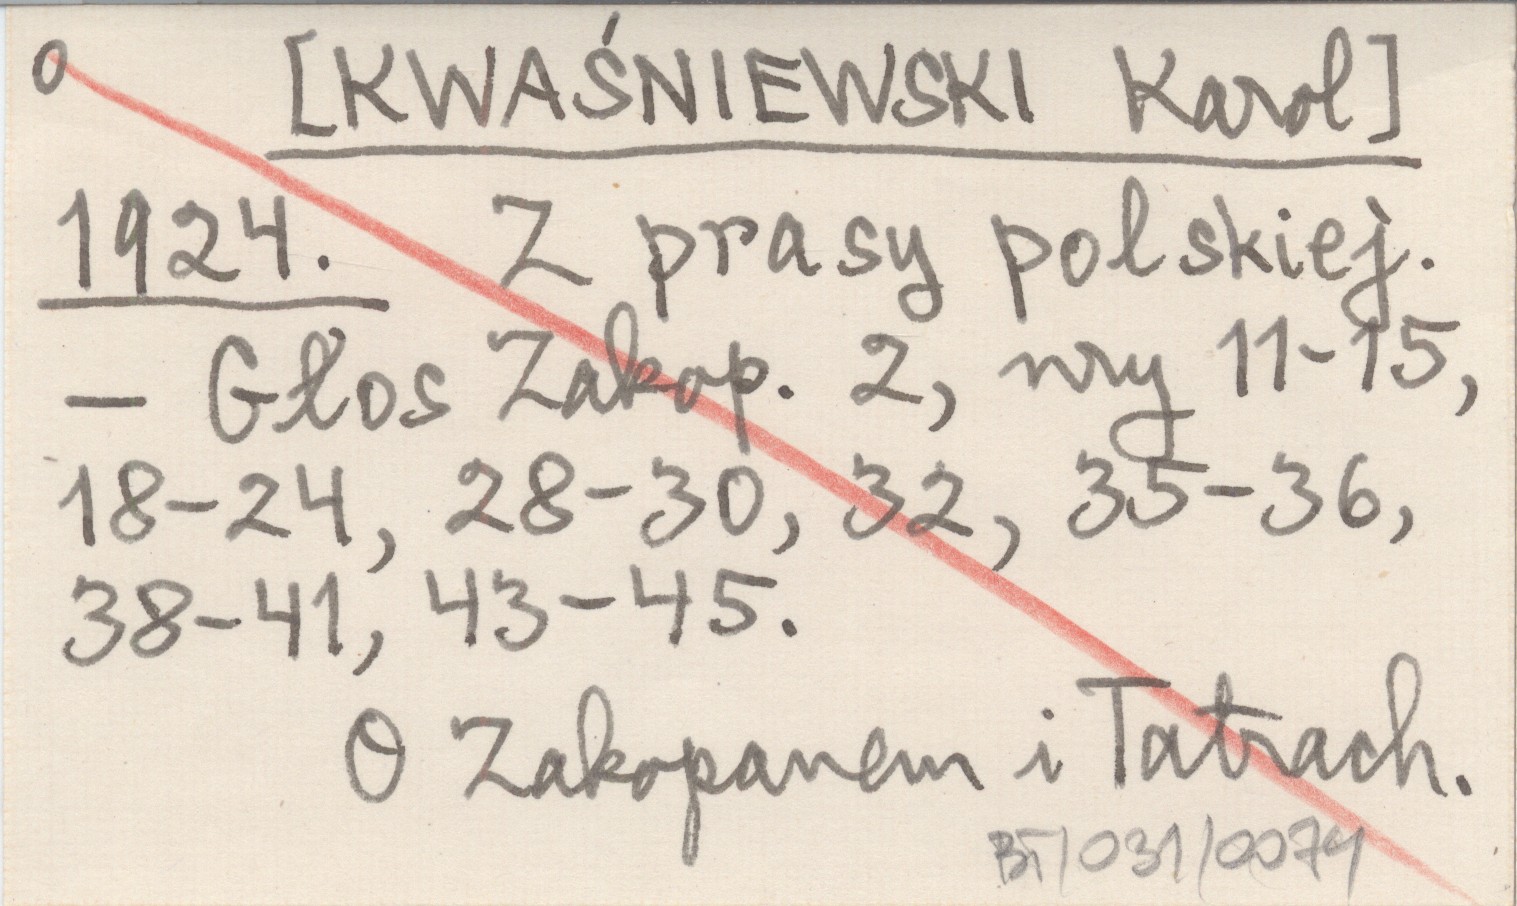 0 [KWAŚNIEWSKI Karol]
1924. Z prasy polskiej.
— Głos Zakop. 2, nry 11-15,
18-24, 28-30, 32, 35-36,
38-41, 43-45.
O Zakopanem i Tatrach.
BT/031/0074